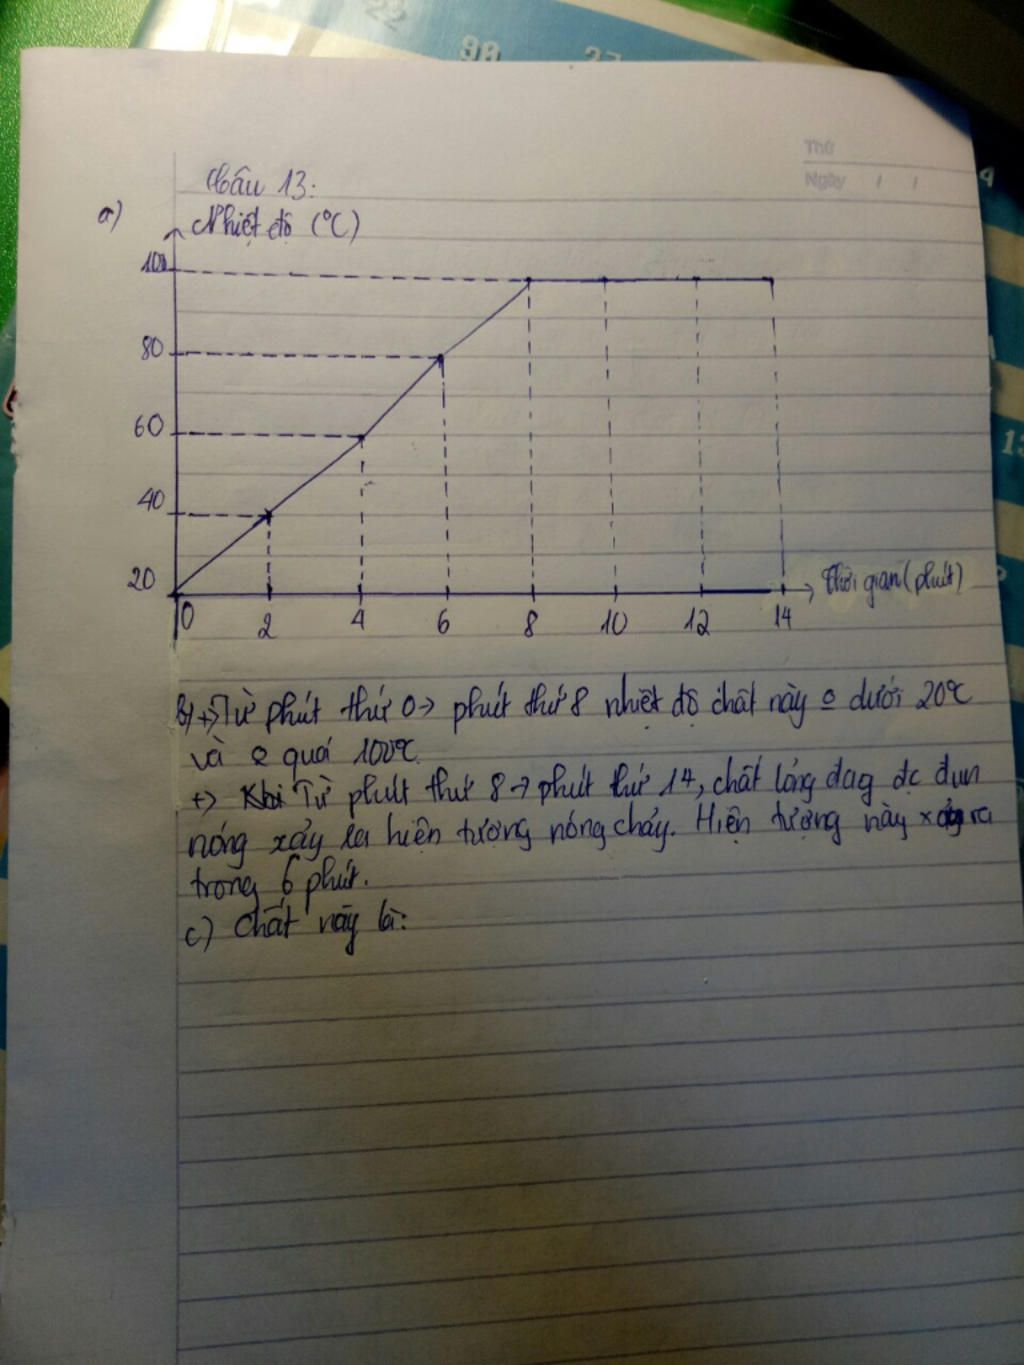 22
98
27
Thứ
Ngày / /
4
Câu 13:
a)
Nhiệt độ (°C)
100
80
60
40
20
13
0 2 4 6 8 10 12 14
Thời gian (phút)
b) +) Từ phút thứ 0 → phút thứ 8 nhiệt độ chất này o dưới 20°C
và o quá 100°C.
+) Khi Từ phút thứ 8 → phút thứ 14, chất lỏng đag đc đun
nóng xảy ra hiện tượng nóng chảy. Hiện tượng này xảy ra
trong 6 phút.
c) Chất này là: